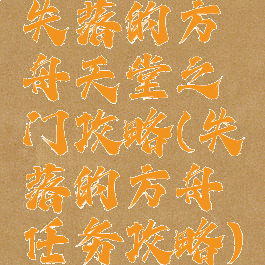 失落的方
舟天堂之
门攻略(失
落的方舟
任务攻略)